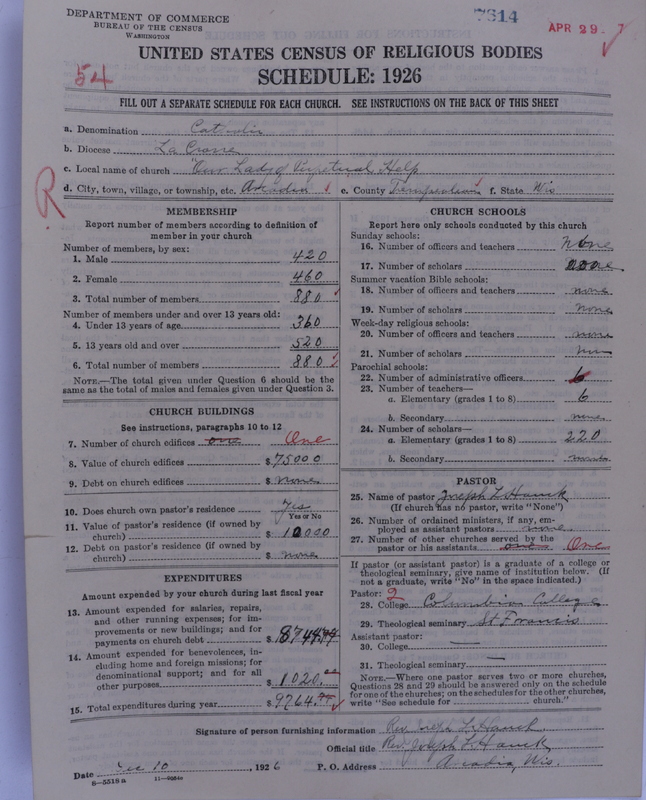 DEPARTMENT OF COMMERCE
BUREAU OF THE CENSUS
WASHINGTON
7614
APR 29. 7
UNITED STATES CENSUS OF RELIGIOUS BODIES
54
SCHEDULE: 1926
FILL OUT A SEPARATE SCHEDULE FOR EACH CHURCH. SEE INSTRUCTIONS ON THE BACK OF THIS SHEET
a. Denomination Catholic
b. Diocese La Crosse
c. Local name of church "Our Lady of Perpetual Help
R
d. City, town, village, or township, etc. Arcadia e. County Trempealeau f. State Wis
MEMBERSHIP
Report number of members according to definition of
member in your church
Number of members, by sex:
1. Male 420
2. Female 460
3. Total number of members 880
Number of members under and over 13 years old:
4. Under 13 years of age 360
5. 13 years old and over 520
6. Total number of members 880
NOTE.—The total given under Question 6 should be
the same as the total of males and females given under Question 3.
CHURCH BUILDINGS
See instructions, paragraphs 10 to 12
7. Number of church edifices one One
8. Value of church edifices $75000
9. Debt on church edifices $ none
10. Does church own pastor's residence Yes
Yes or No
11. Value of pastor's residence (if owned by
church) $ 10000
12. Debt on pastor's residence (if owned by
church) $ none
EXPENDITURES
Amount expended by your church during last fiscal year
13. Amount expended for salaries, repairs,
and other running expenses; for im-
provements or new buildings; and for
payments on church debt $ 8744
14. Amount expended for benevolences, in-
cluding home and foreign missions; for
denominational support; and for all
other purposes $ 1020
15. Total expenditures during year $ 9764
CHURCH SCHOOLS
Report here only schools conducted by this church
Sunday schools:
16. Number of officers and teachers None
17. Number of scholars none
Summer vacation Bible schools:
18. Number of officers and teachers none
19. Number of scholars none
Week-day religious schools:
20. Number of officers and teachers none
21. Number of scholars none
Parochial schools:
22. Number of administrative officers
23. Number of teachers—
a. Elementary (grades 1 to 8) 6
b. Secondary none
24. Number of scholars—
a. Elementary (grades 1 to 8) 220
b. Secondary none
PASTOR
25. Name of pastor Joseph L. Hauck
(If church has no pastor, write "None")
26. Number of ordained ministers, if any, em-
ployed as assistant pastors none
27. Number of other churches served by the
pastor or his assistants one One
If pastor (or assistant pastor) is a graduate of a college or
theological seminary, give name of institution below. (If
not a graduate, write "No" in the space indicated.)
Pastor: 2
28. College Columbia College
29. Theological seminary St Francis
Assistant pastor:
30. College —
31. Theological seminary —
NOTE.—Where one pastor serves two or more churches,
Questions 28 and 29 should be answered only on the schedule
for one of the churches; on the schedules for the other churches,
write "See schedule for church."
Signature of person furnishing information Rev. Joseph L. Hauck
Official title Rev. Joseph L. Hauck
Date Dec 10, 1926 P. O. Address Arcadia, Wis.
8-5518 a